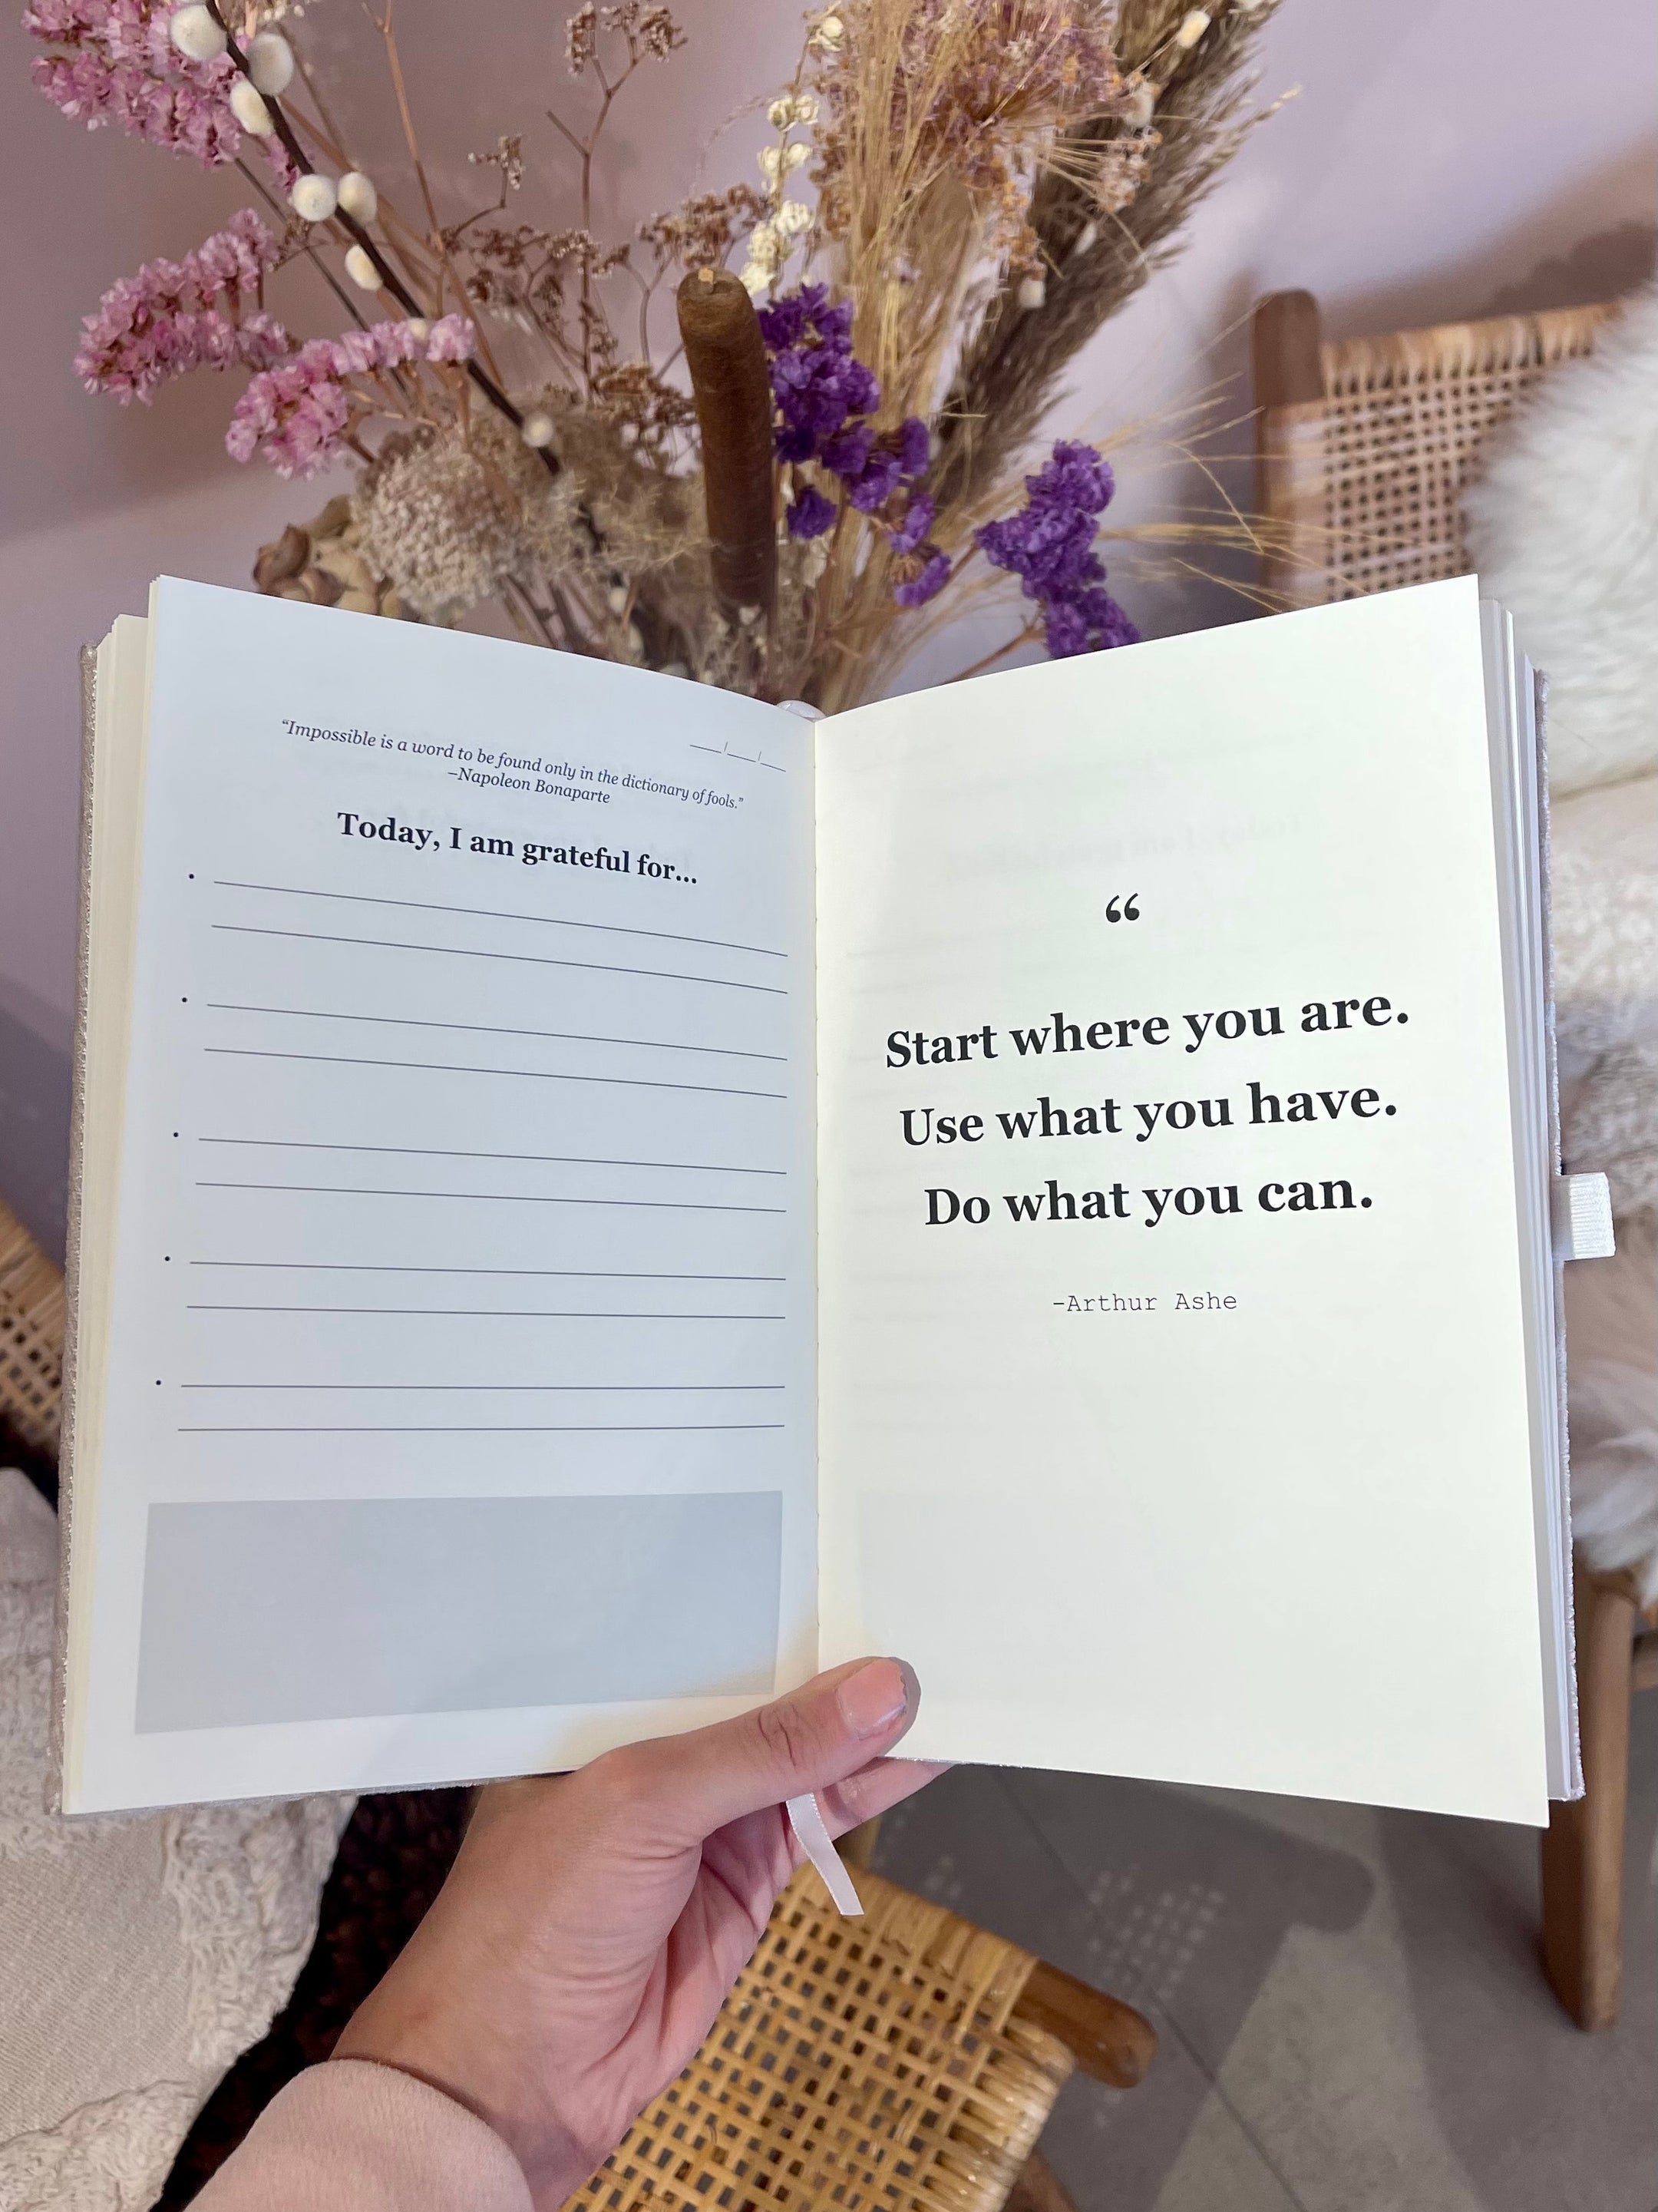 __/__/__
“Impossible is a word to be found only in the dictionary of fools.”
–Napoleon Bonaparte
Today, I am grateful for...
“
Start where you are.
Use what you have.
Do what you can.
-Arthur Ashe